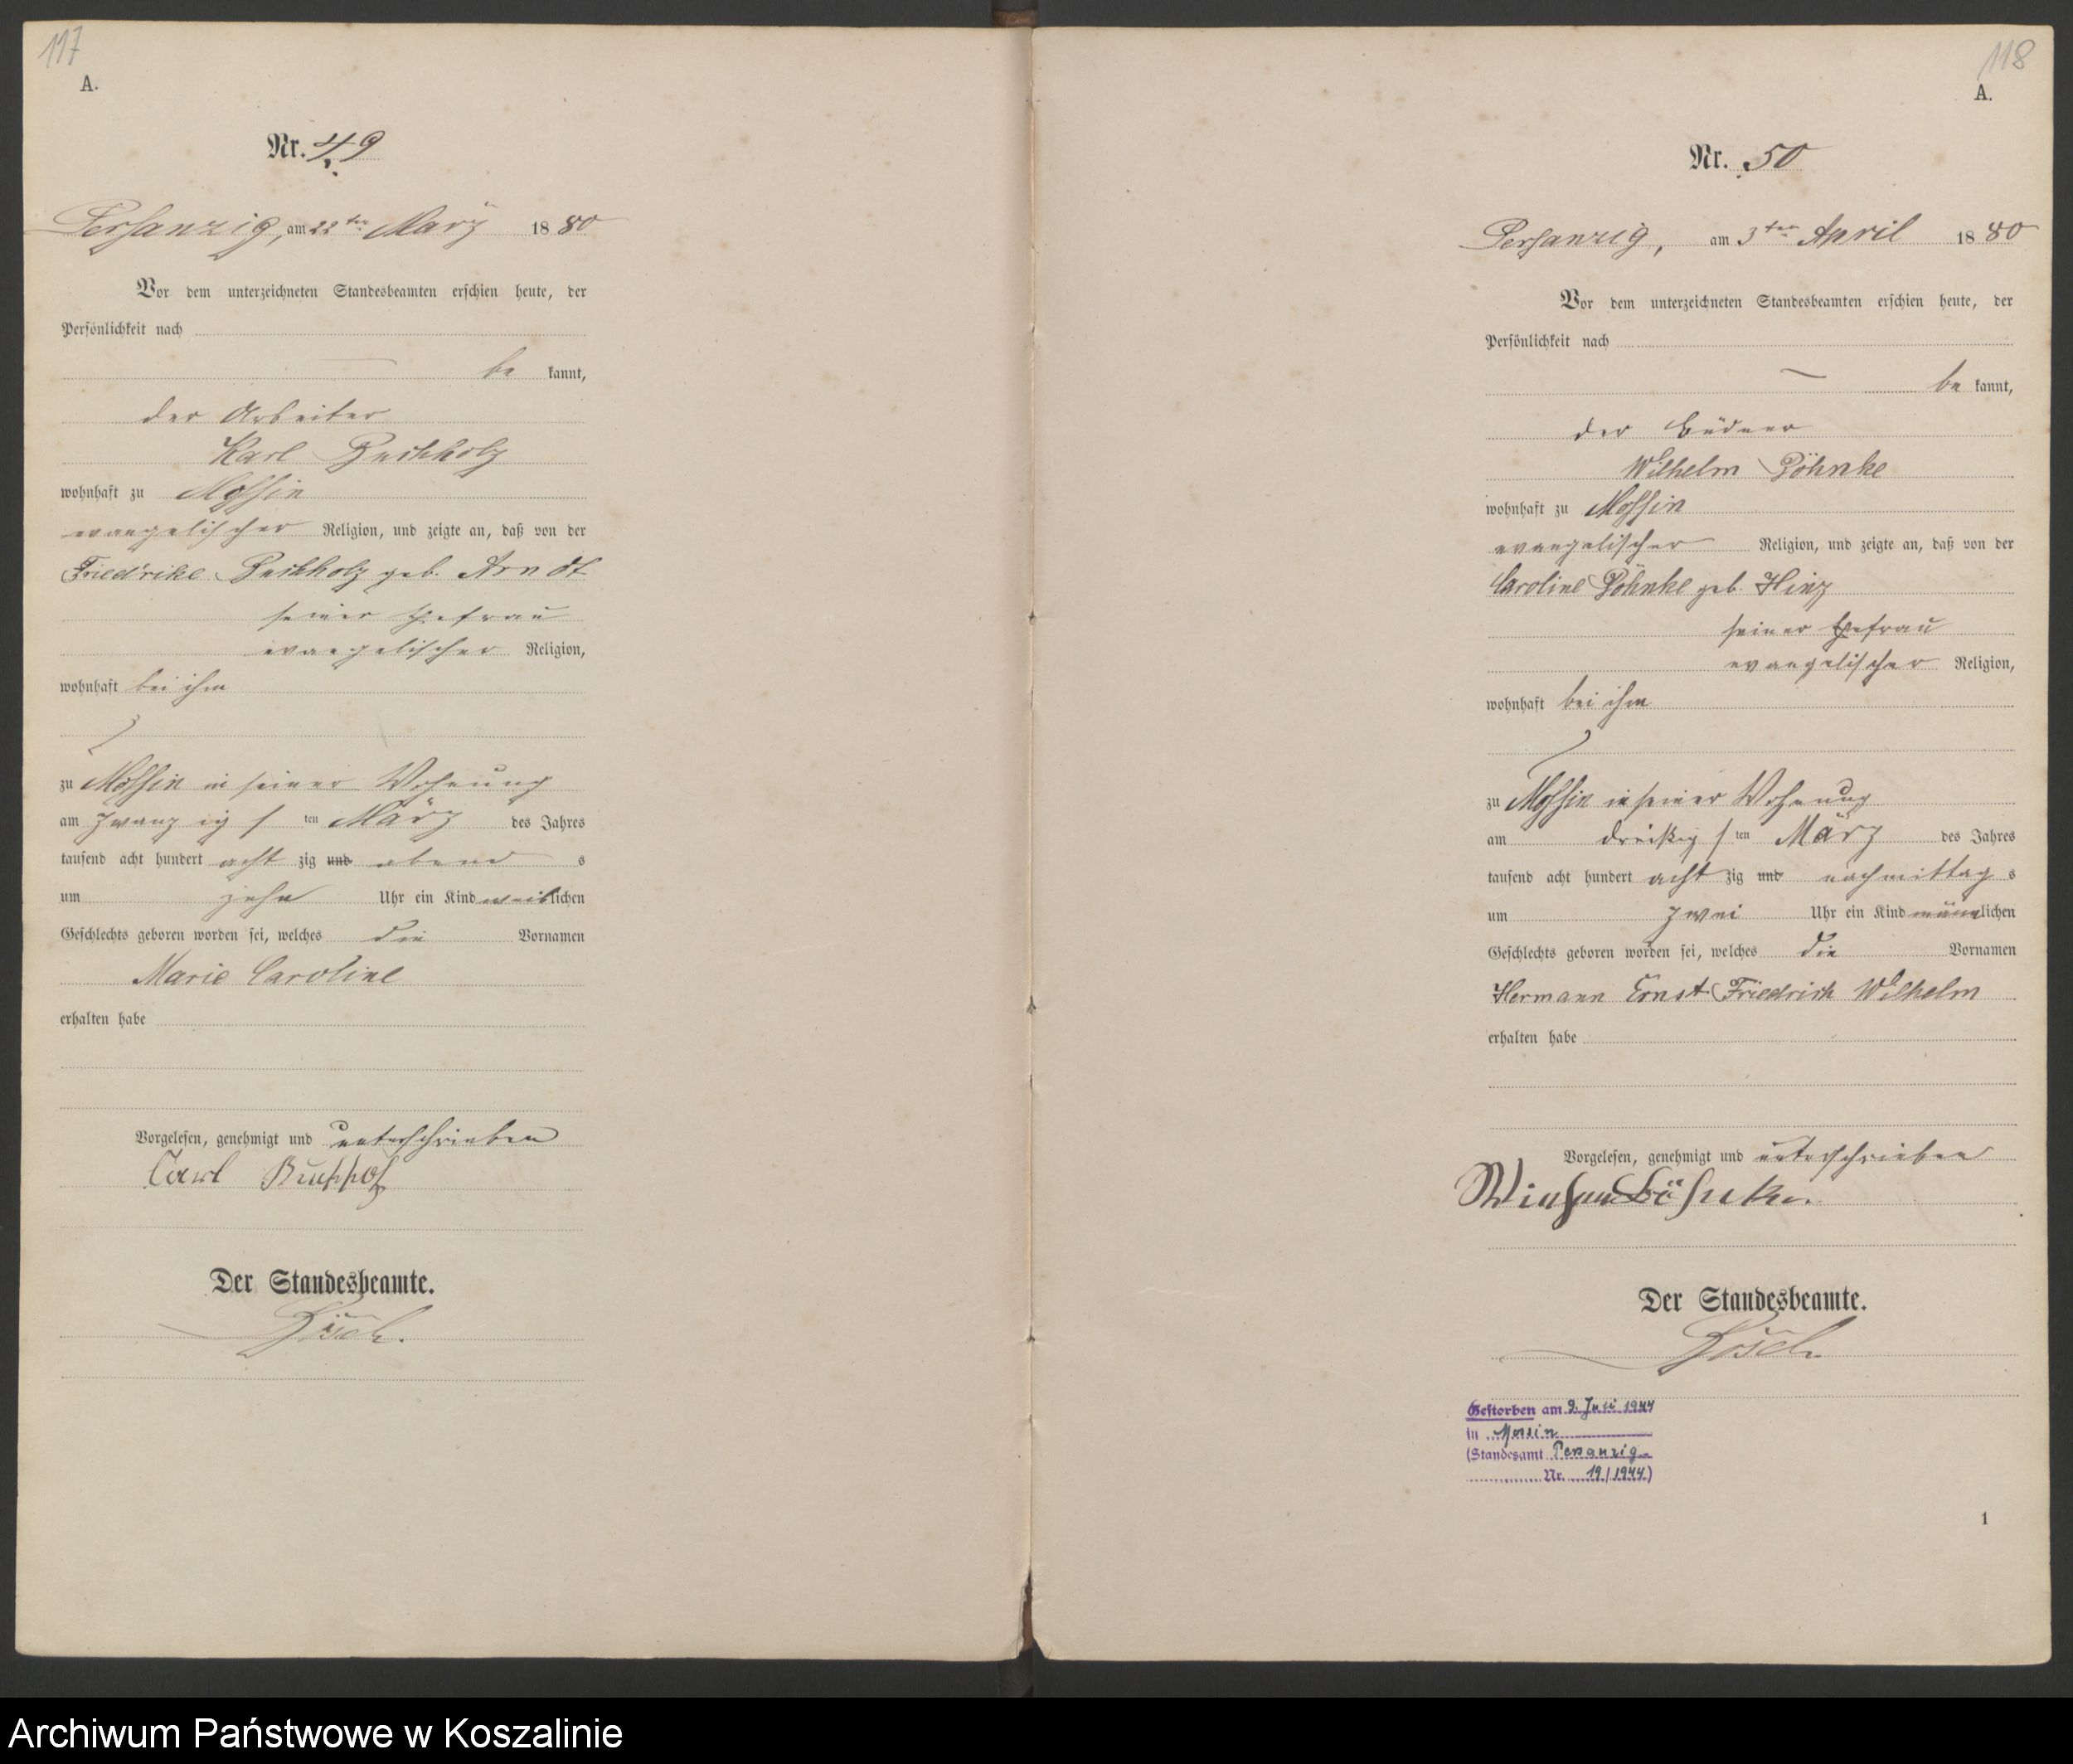 117
A.
Nr. 49
Persanzig, am 22ten März 1880
Vor dem unterzeichneten Standesbeamten erschien heute, der
Persönlichkeit nach
be kannt,
der Arbeiter
Karl Buchholz
wohnhaft zu Mossin
evangelischer Religion, und zeigte an, daß von der
Friedrike Buchholz geb. Arndt
seiner Ehefrau
evangelischer Religion,
wohnhaft bei ihm
zu Mossin in seiner Wohnung
am zwanzigsten März des Jahres
tausend acht hundert acht zig und abends
um zehn Uhr ein Kind weiblichen
Geschlechts geboren worden sei, welches die Vornamen
Marie Caroline
erhalten habe
Vorgelesen, genehmigt und unterschrieben
Carl Buchholz
Der Standesbeamte.
118
A.
Nr. 50
Persanzig, am 3ten April 1880
Vor dem unterzeichneten Standesbeamten erschien heute, der
Persönlichkeit nach
be kannt,
der Büdner
Wilhelm Pöhnke
wohnhaft zu Mossin
evangelischer Religion, und zeigte an, daß von der
Caroline Pöhnke geb. Hinz
seiner Ehefrau
evangelischer Religion,
wohnhaft bei ihm
zu Mossin in seiner Wohnung
am dreißigsten März des Jahres
tausend acht hundert acht zig und nachmittags
um zwei Uhr ein Kind männlichen
Geschlechts geboren worden sei, welches die Vornamen
Hermann Ernst Friedrich Wilhelm
erhalten habe
Vorgelesen, genehmigt und unterschrieben
Der Standesbeamte.
Gestorben am 9. Juli 1944
in Mossin
(Standesamt Persanzig
Nr. 19/1944)
1
Archiwum Państwowe w Koszalinie